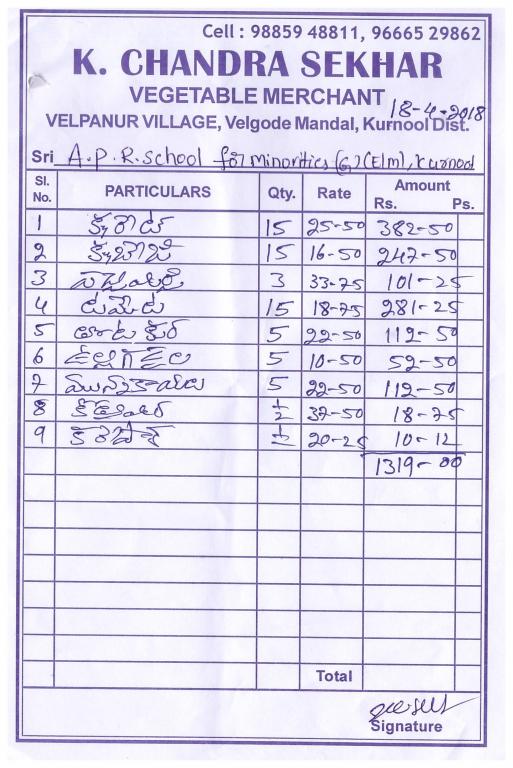 Cell : 98859 48811, 96665 29862
K. CHANDRA SEKHAR
VEGETABLE MERCHANT
18-4-2018
VELPANUR VILLAGE, Velgode Mandal, Kurnool Dist.
Sri A.P.R.School for Minorities (G) (E/m), Kurnool
Sl. No. PARTICULARS Qty. Rate Amount Rs. Ps.
1 క్యారెట్ 15 25-50 382-50
2 క్యాబేజి 15 16-50 247-50
3 3 33-75 101-25
4 టమోట 15 18-75 281-25
5 5 22-50 112-50
6 ఉల్లిగడ్డలు 5 10-50 52-50
7 మునక్కాయలు 5 22-50 112-50
8 ½ 37-50 18-75
9 ½ 20-25 10-12
1319-00
Total
Signature